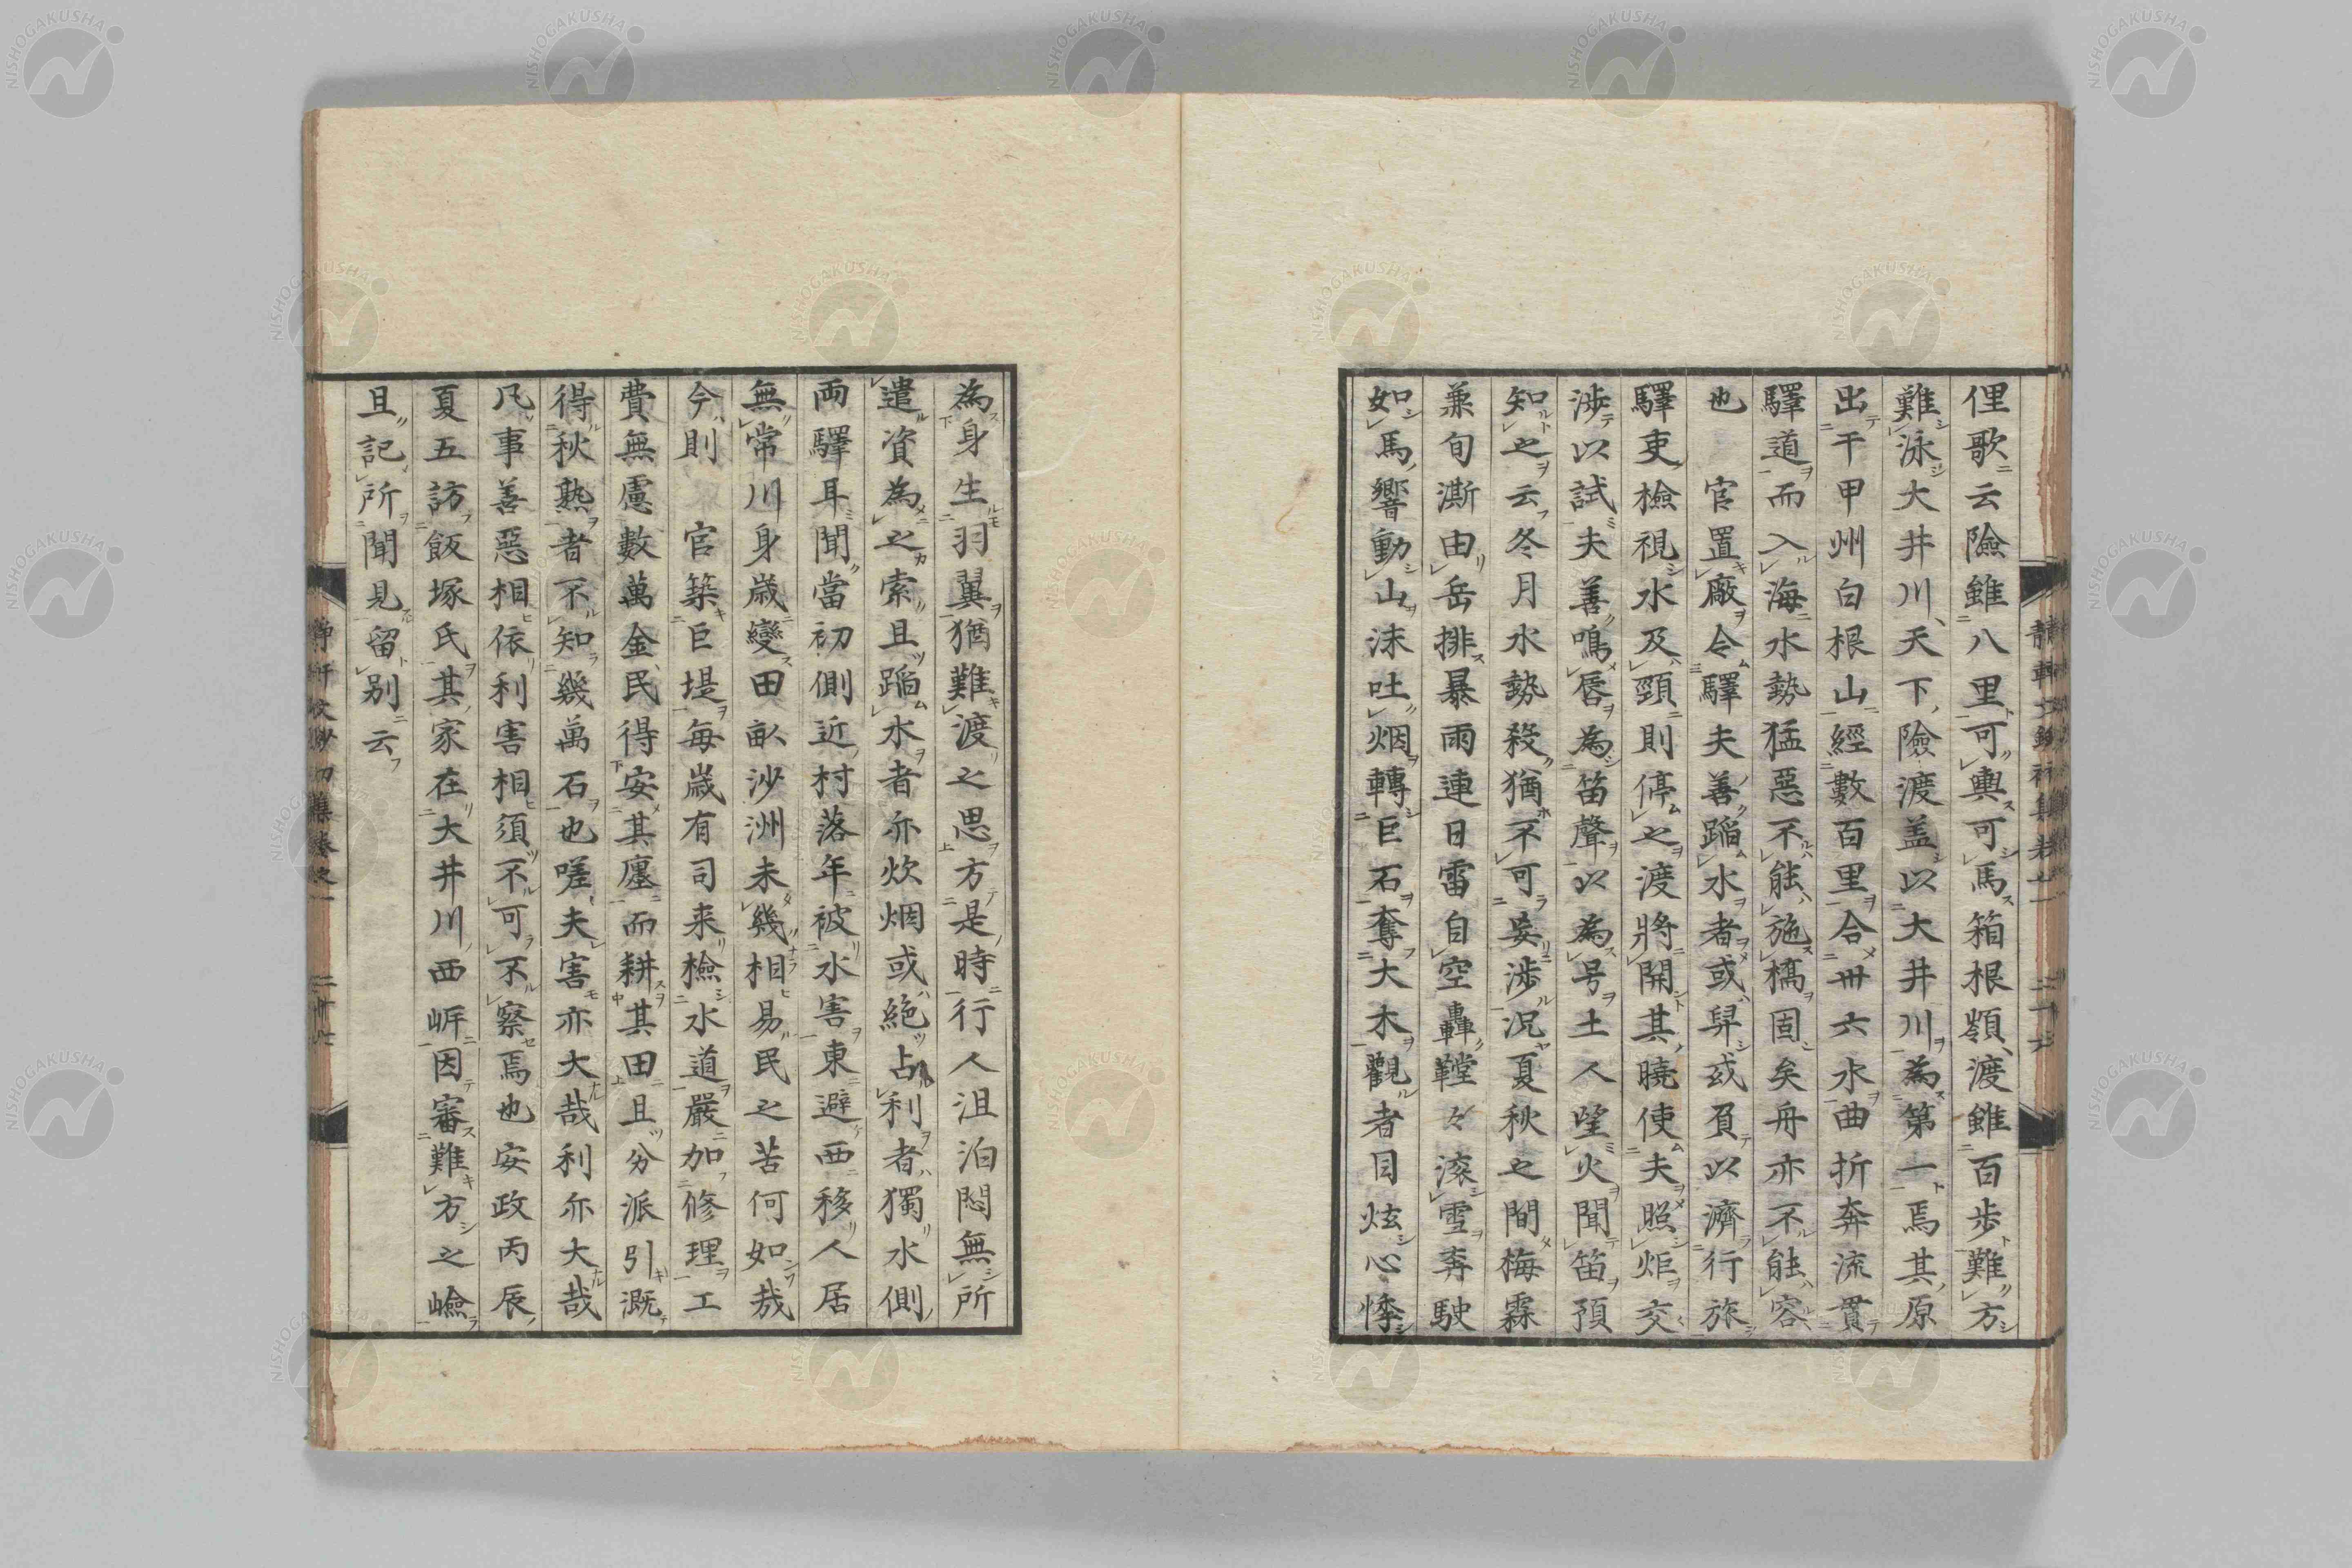 俚歌云險雖八里可輿可馬箱根嶺渡雖百歩難方
難泳大井川天下險渡盖以大井川為第一焉其原
出于甲州白根山經數百里合卌六水曲折奔流貫
驛道而入海水勢猛惡不能施橋固矣舟亦不能容
也　官置廠令驛夫善蹈水者或舁或負以濟行旅
驛吏檢視水及頸則停之渡將開其曉使夫照炬交
渉以試夫善鳴唇為笛聲以為号土人望火聞笛預
知之云冬月水勢殺猶不可妄渉况夏秋之間梅霖
兼旬澌由岳排暴雨連日雷自空轟鞺々滚雪奔駛
如馬響動山沫吐烟轉巨石奪大木觀者目炫心悸
為身生羽翼猶難渡之思方是時行人沮泊悶無所
遣資為之索且蹈水者亦炊烟或絶占利者獨水側
両驛耳聞當初側近村落年被水害東避西移人居
無常川身歳變田畝沙洲未幾相易民之苦何如哉
今則　官築巨堤毎歳有司来檢水道嚴加修理工
費無慮數萬金民得安其廛而耕其田且分派引漑
得秋熟者不知幾萬石也嗟夫害亦大哉利亦大哉
凡事善惡相依利害相須不可不察焉也安政丙辰
夏五訪飯塚氏其家在大井川西岸因審難方之嶮
且記所聞見留別云